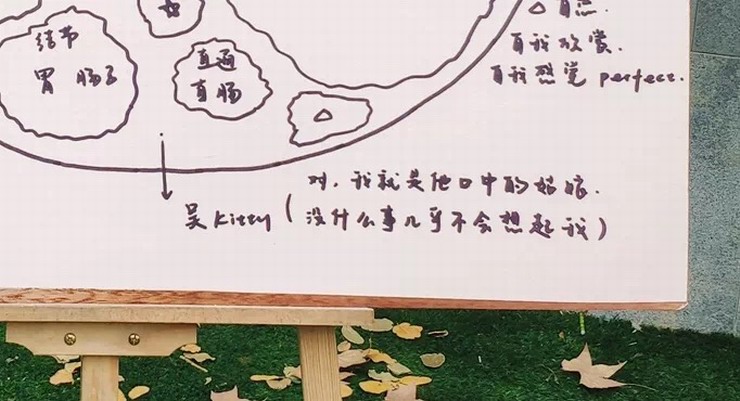 △ 自恋.
自我欣赏.
自我感觉 perfect.
结节
胃 肠子
直通
直肠
△
对,我就是他口中的姑娘.
吴Kitty(没什么事几乎不会想起我)